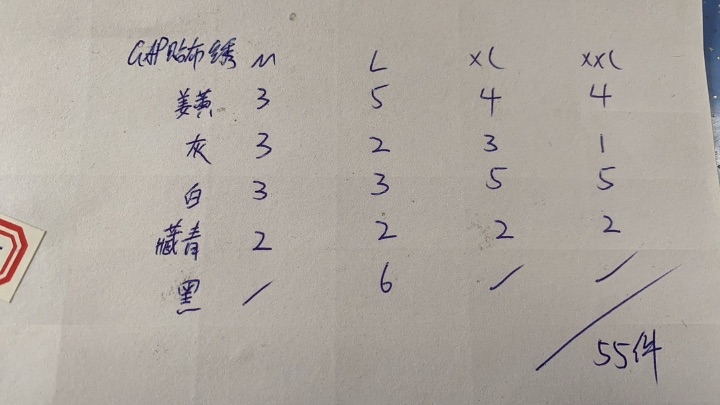 GAP贴布绣 M L XL XXL
姜黄 3 5 4 4
灰 3 2 3 1
白 3 3 5 5
藏青 2 2 2 2
黑 / 6 / /
55件